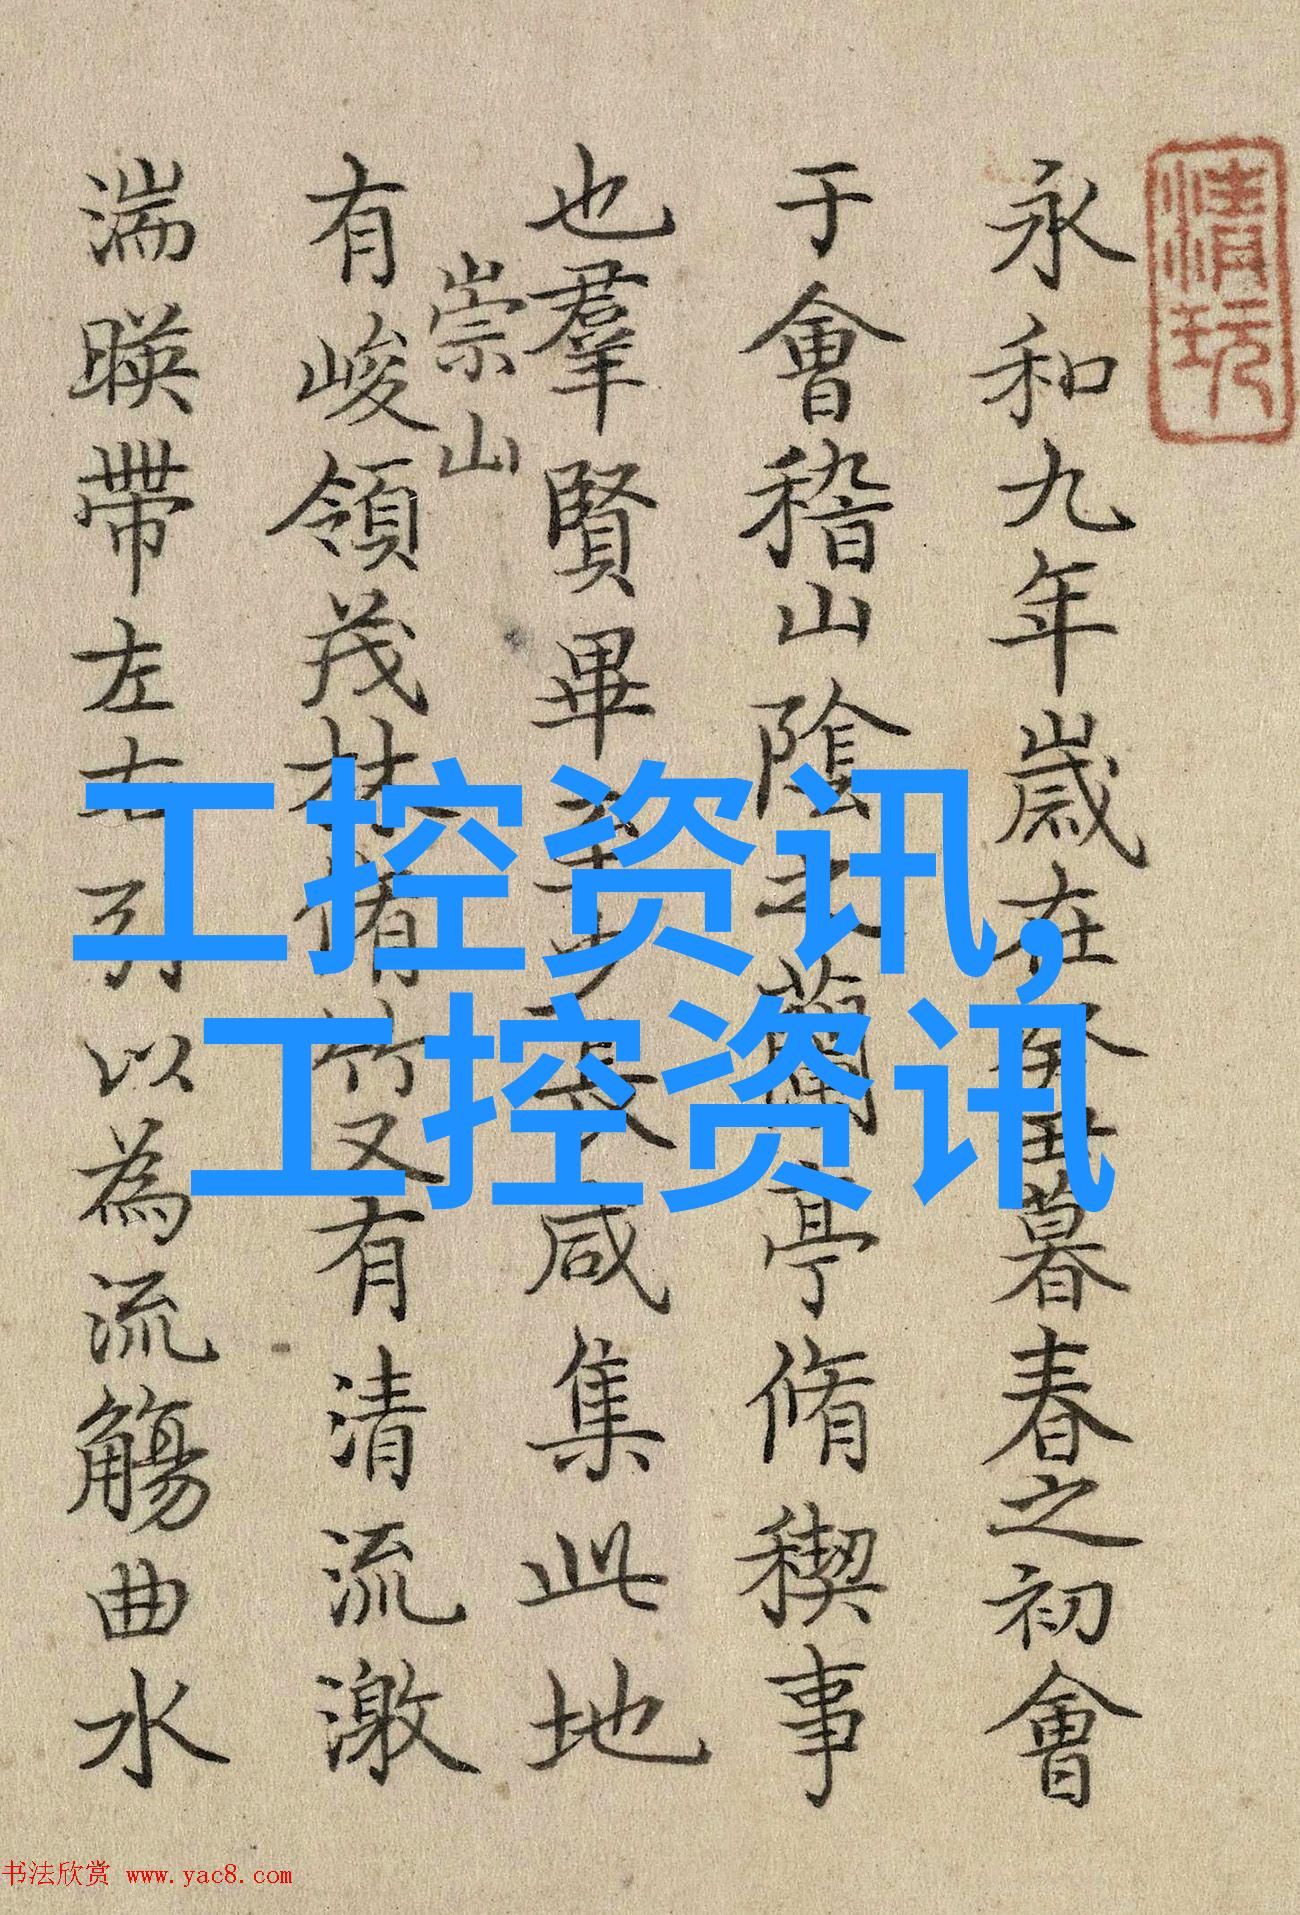 清玩
永和九年歲在癸丑暮春之初會
于會稽山陰之蘭亭脩稧事
也羣賢畢至少長咸集此地
崇山
有峻領茂林脩竹又有清流激
湍暎帶左右引以為流觴曲水
工控资讯,
工控资讯
书法欣赏 www.yac8.com